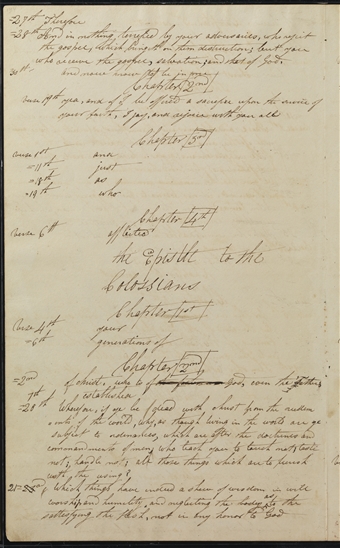 27th Therefore
=28th And in nothing, terrified by your adversaries, who reject
the gospel, which bringeth on them destruction; but you
who receive the gospel, salvation; and that of God.
30th and now know to be in me
Chapter 2nd
verse 17th yea, and if I be offered a sacrifice upon the service of
your faith, I joy, and rejoice with you all
Chapter 3d
verse 1st and
=11th just
=18th as
=19th who
Chapter 4th
verse 6th afflicted
the Epistle to the
Colossians
Chapter 1st
verse 4th your
=6th generations of
Chapter 2nd
=2nd of christ, who is of God, even the Father;
7th established
=20th Wherefore, if ye be dead with christ from the rudim
ents of the world, why, as though living in the world are ye
subject to ordinances, which are after the doctrines and
commandments of men, who teach you to touch not; taste
not; handle not; all those things which are to perish
with the using;
Which things have indeed a shew of wisdom in will
worship, and humility, and neglecting the body as to the
satisfying the flesh, not in any honor to God